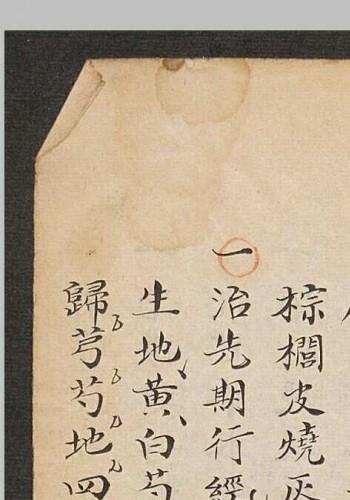 棕櫚皮燒灰
一治先期行經
生地黃白芍
歸芎芍地四